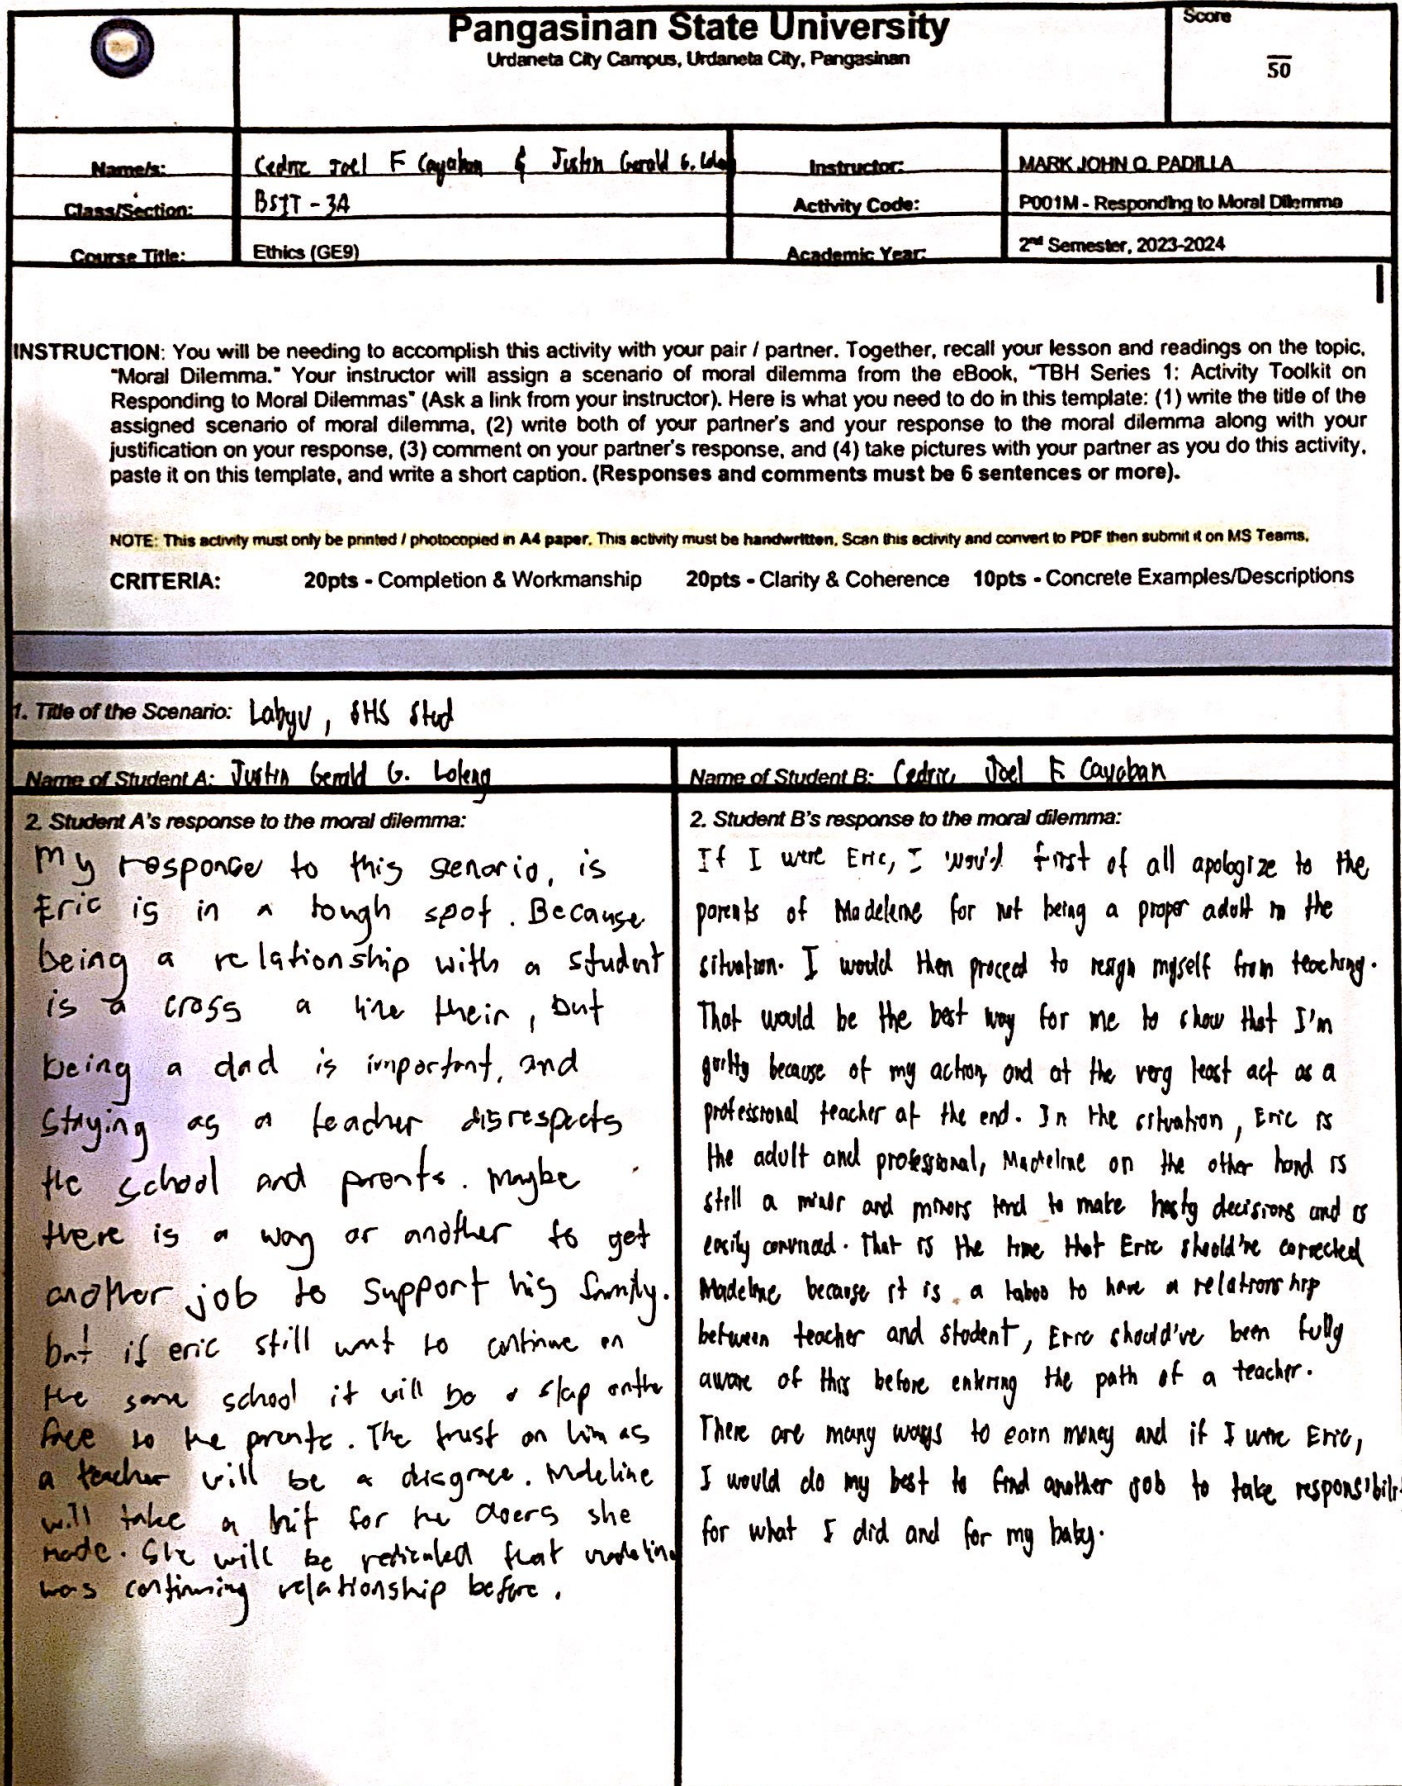 Pangasinan State University
Urdaneta City Campus, Urdaneta City, Pangasinan
Score
50
Name/s:
Cedric Joel F Cayaban & Justin Gerald G.
Instructor:
MARK JOHN O. PADILLA
Class/Section:
BSIT - 3A
Activity Code:
P001M - Responding to Moral Dilemma
Course Title:
Ethics (GE9)
Academic Year:
2nd Semester, 2023-2024
INSTRUCTION: You will be needing to accomplish this activity with your pair / partner. Together, recall your lesson and readings on the topic,
"Moral Dilemma." Your instructor will assign a scenario of moral dilemma from the eBook, "TBH Series 1: Activity Toolkit on
Responding to Moral Dilemmas" (Ask a link from your instructor). Here is what you need to do in this template: (1) write the title of the
assigned scenario of moral dilemma, (2) write both of your partner's and your response to the moral dilemma along with your
justification on your response, (3) comment on your partner's response, and (4) take pictures with your partner as you do this activity,
paste it on this template, and write a short caption. (Responses and comments must be 6 sentences or more).
NOTE: This activity must only be printed / photocopied in A4 paper. This activity must be handwritten. Scan this activity and convert to PDF then submit it on MS Teams.
CRITERIA: 20pts - Completion & Workmanship 20pts - Clarity & Coherence 10pts - Concrete Examples/Descriptions
1. Title of the Scenario: Labyu, SHS Stud
Name of Student A: Justin Gerald G. Loleng
2. Student A's response to the moral dilemma:
My responce to this scenario, is
Eric is in a tough spot. Because
being a relationship with a student
is a cross a line their, but
being a dad is important, and
staying as a teacher disrespects
the school and pronts. Maybe
there is a way or another to get
another job to support his family.
but if eric still want to continue on
the same school it will be a slap on the
face to the pronts. The trust on him as
a teacher will be a disgrace. Madeline
will take a hit for the doers she
made. She will be rediculed that madeline
was continuing relationship before.
Name of Student B: Cedric Joel F. Cayaban
2. Student B's response to the moral dilemma:
If I were Eric, I would first of all apologize to the
parents of Madeleine for not being a proper adult in the
situation. I would then proceed to resign myself from teaching.
That would be the best way for me to show that I'm
guilty because of my action, and at the very least act as a
professional teacher at the end. In the situation, Eric is
the adult and professional, Madeline on the other hand is
still a minor and minors tend to make hasty decisions and is
easily convinced. That is the time that Eric should've corrected
Madeline because it is a taboo to have a relationship
between teacher and student, Eric should've been fully
aware of this before entering the path of a teacher.
There are many ways to earn money and if I were Eric,
I would do my best to find another job to take responsibili
for what I did and for my baby.